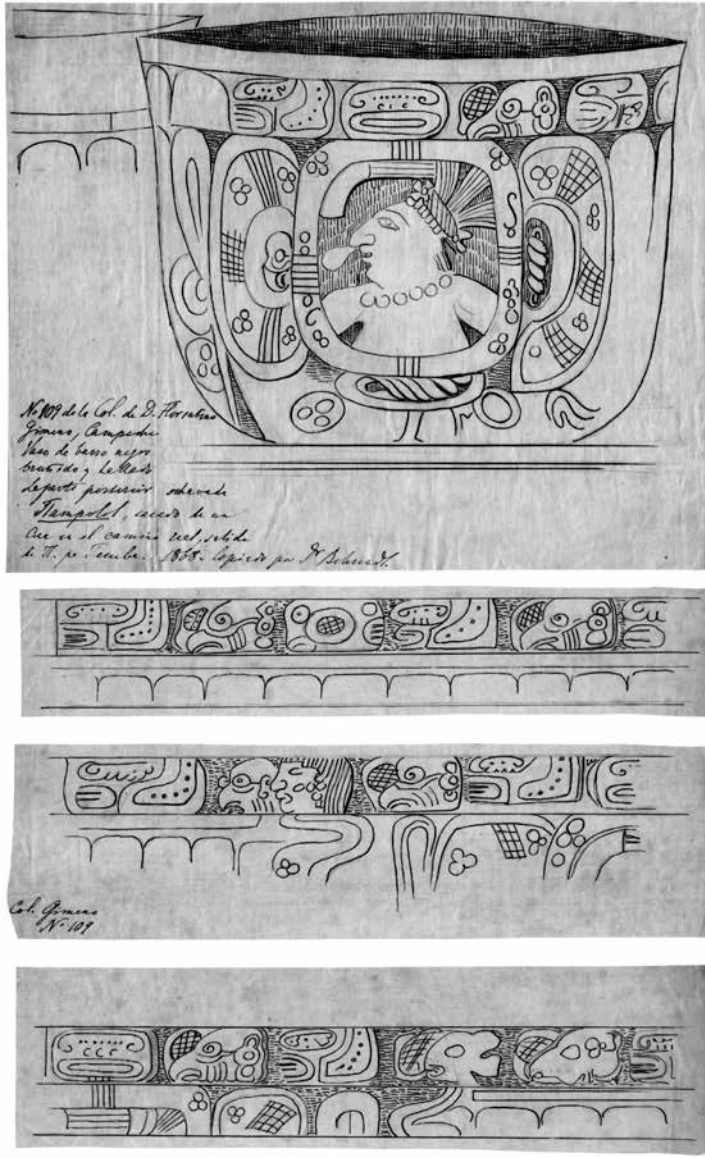 No 109 de la Col. de D. Florentino
Gimeno, Campeche
Vaso de barro negro
bruñido y
de parte posterior
Tlampolol, sacado de un
Cue en el camino real, salida
de H. pa Tenabo. 1868. Copiado por Dr Behrendt.
Col. Gimeno
No 109